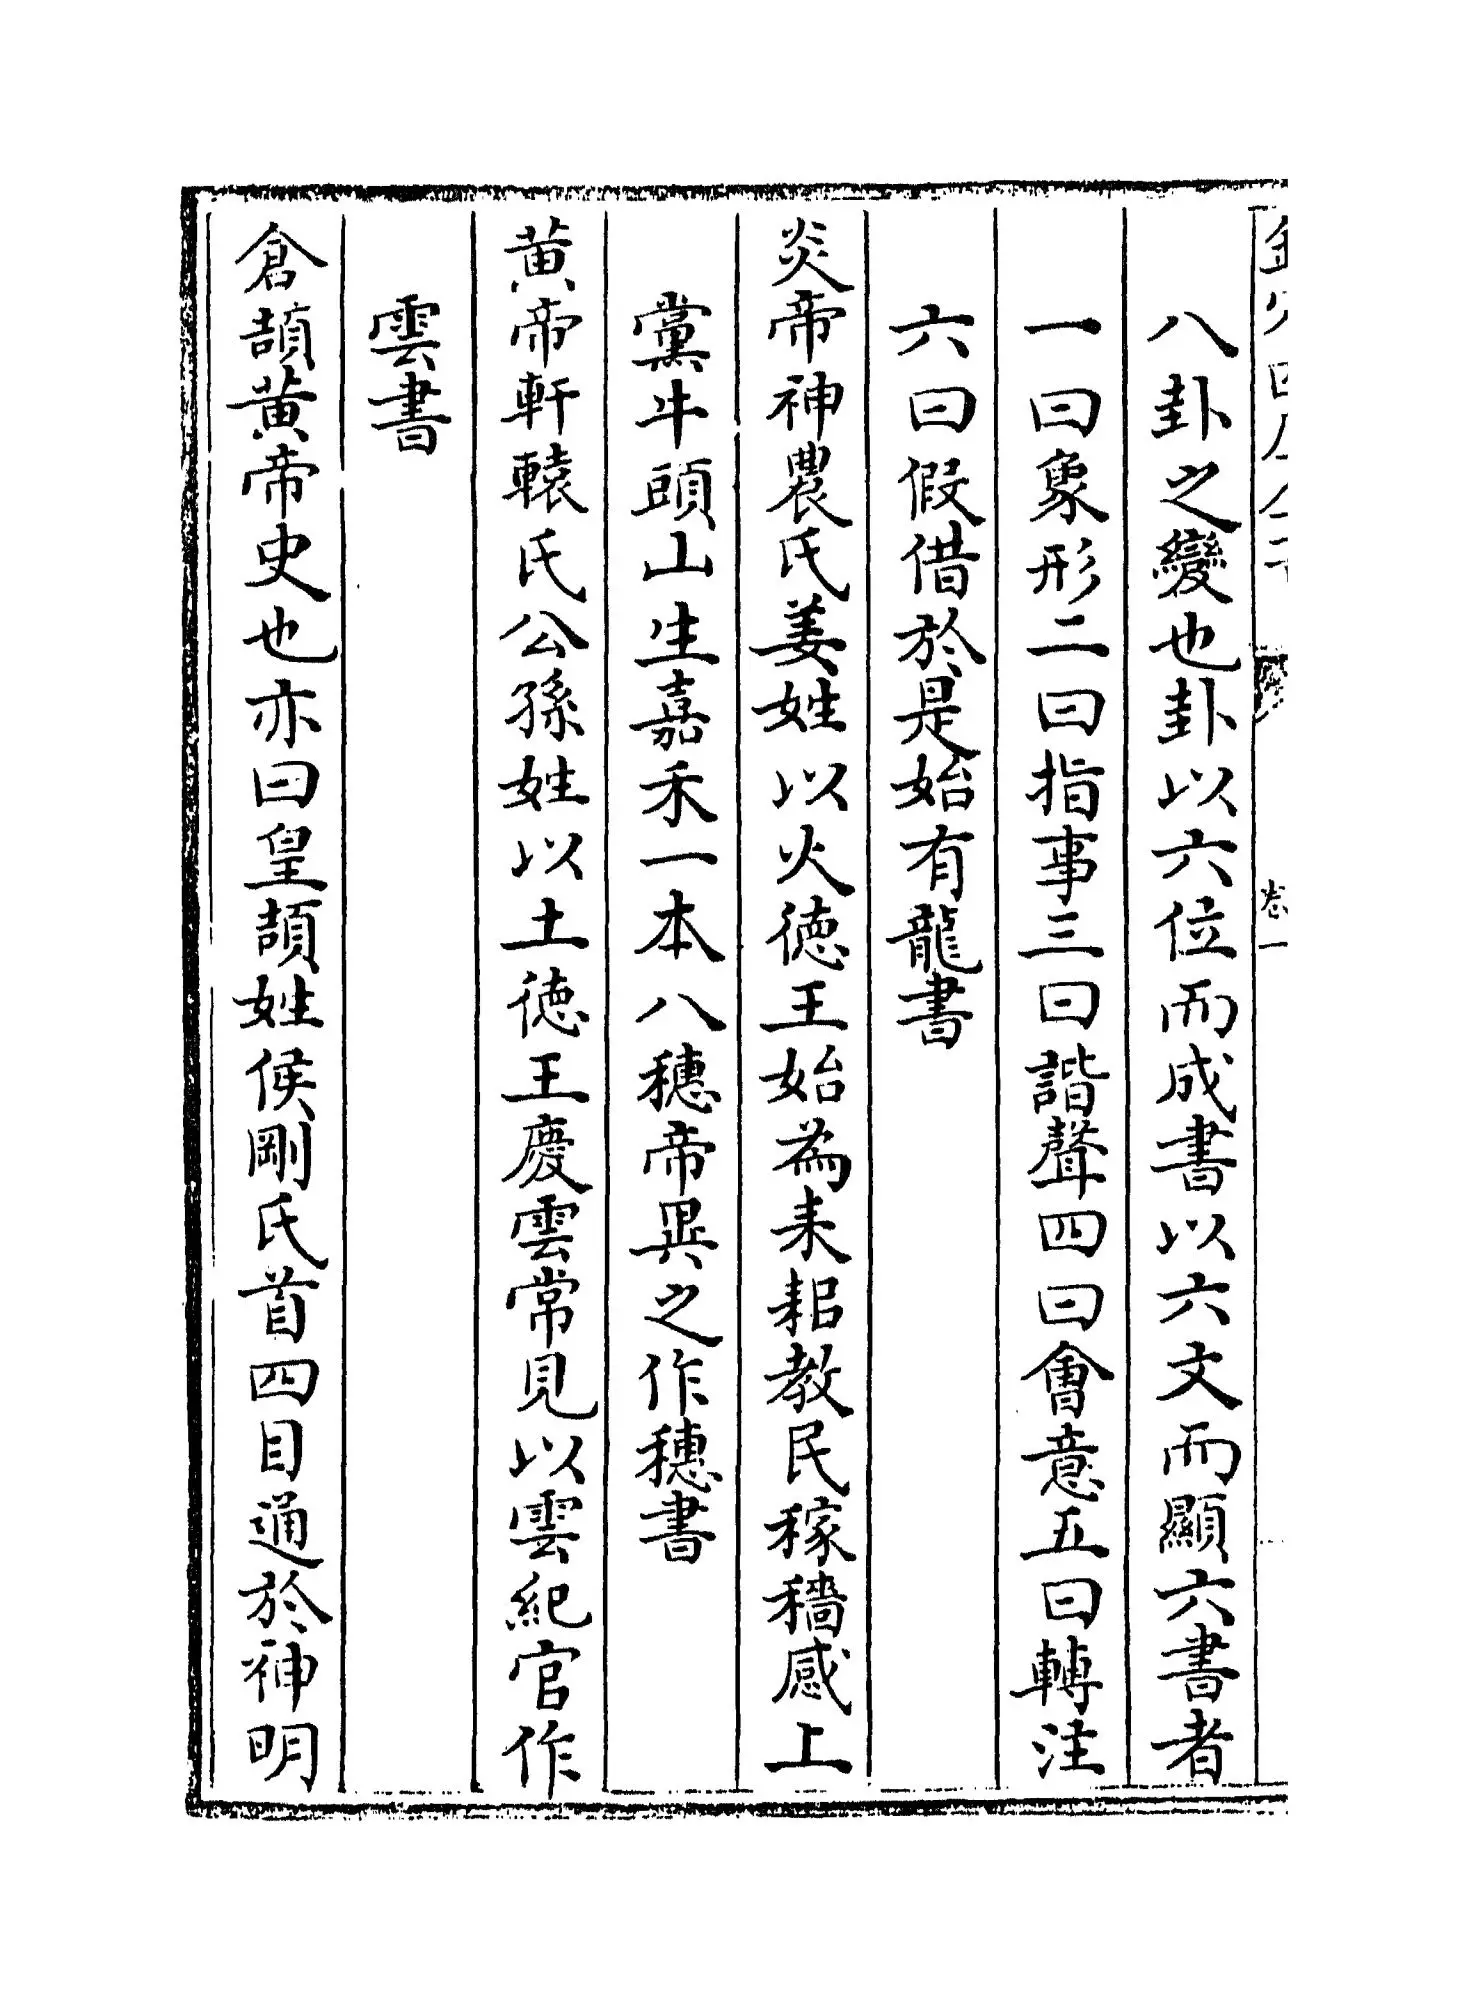 八卦之變也卦以六位而成書以六文而顯六書者
一曰象形二曰指事三曰諧聲四曰會意五曰轉注
六曰假借於是始有龍書
炎帝神農氏姜姓以火徳王始為耒耜教民稼穡感上
黨牛頭山生嘉禾一本八穗帝異之作穗書
黄帝軒轅氏公孫姓以土徳王慶雲常見以雲紀官作
雲書
倉頡黄帝史也亦曰皇頡姓侯剛氏首四目通於神明
卷一